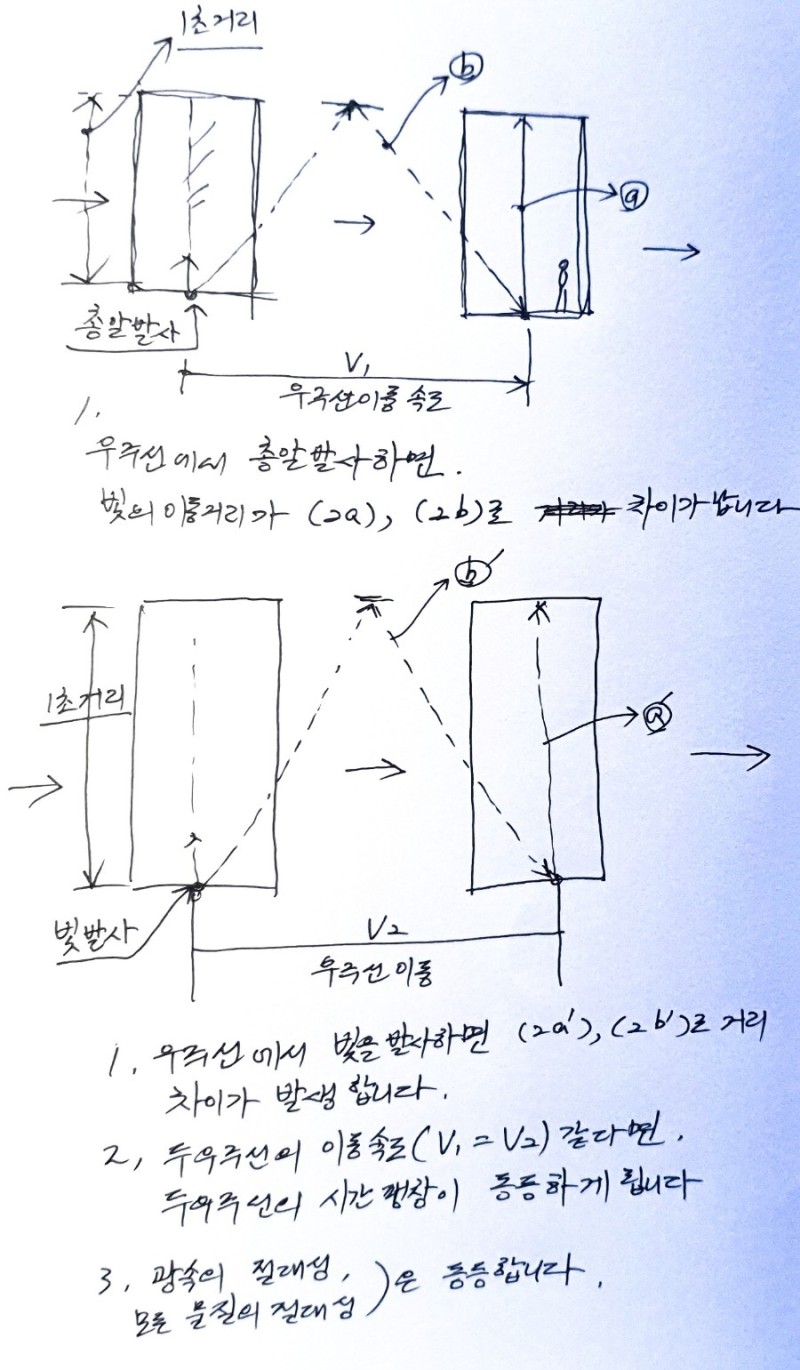 1초거리
ⓑ
ⓐ
총알발사
V₁
우주선이동속도
1.
우주선에서 총알발사하면.
빛의 이동거리가 (2a), (2b)로 차이가 납니다
ⓑ′
1초거리
ⓐ′
빛발사
V₂
우주선 이동
1, 우주선에서 빛을 발사하면 (2a′), (2b′)로 거리
차이가 발생합니다.
2, 두우주선의 이동속도(V₁ = V₂) 같다면,
두우주선의 시간팽창이 동등하게 됩니다
3, 광속의 절대성,
모든 물질의 절대성 ) 은 동등합니다.